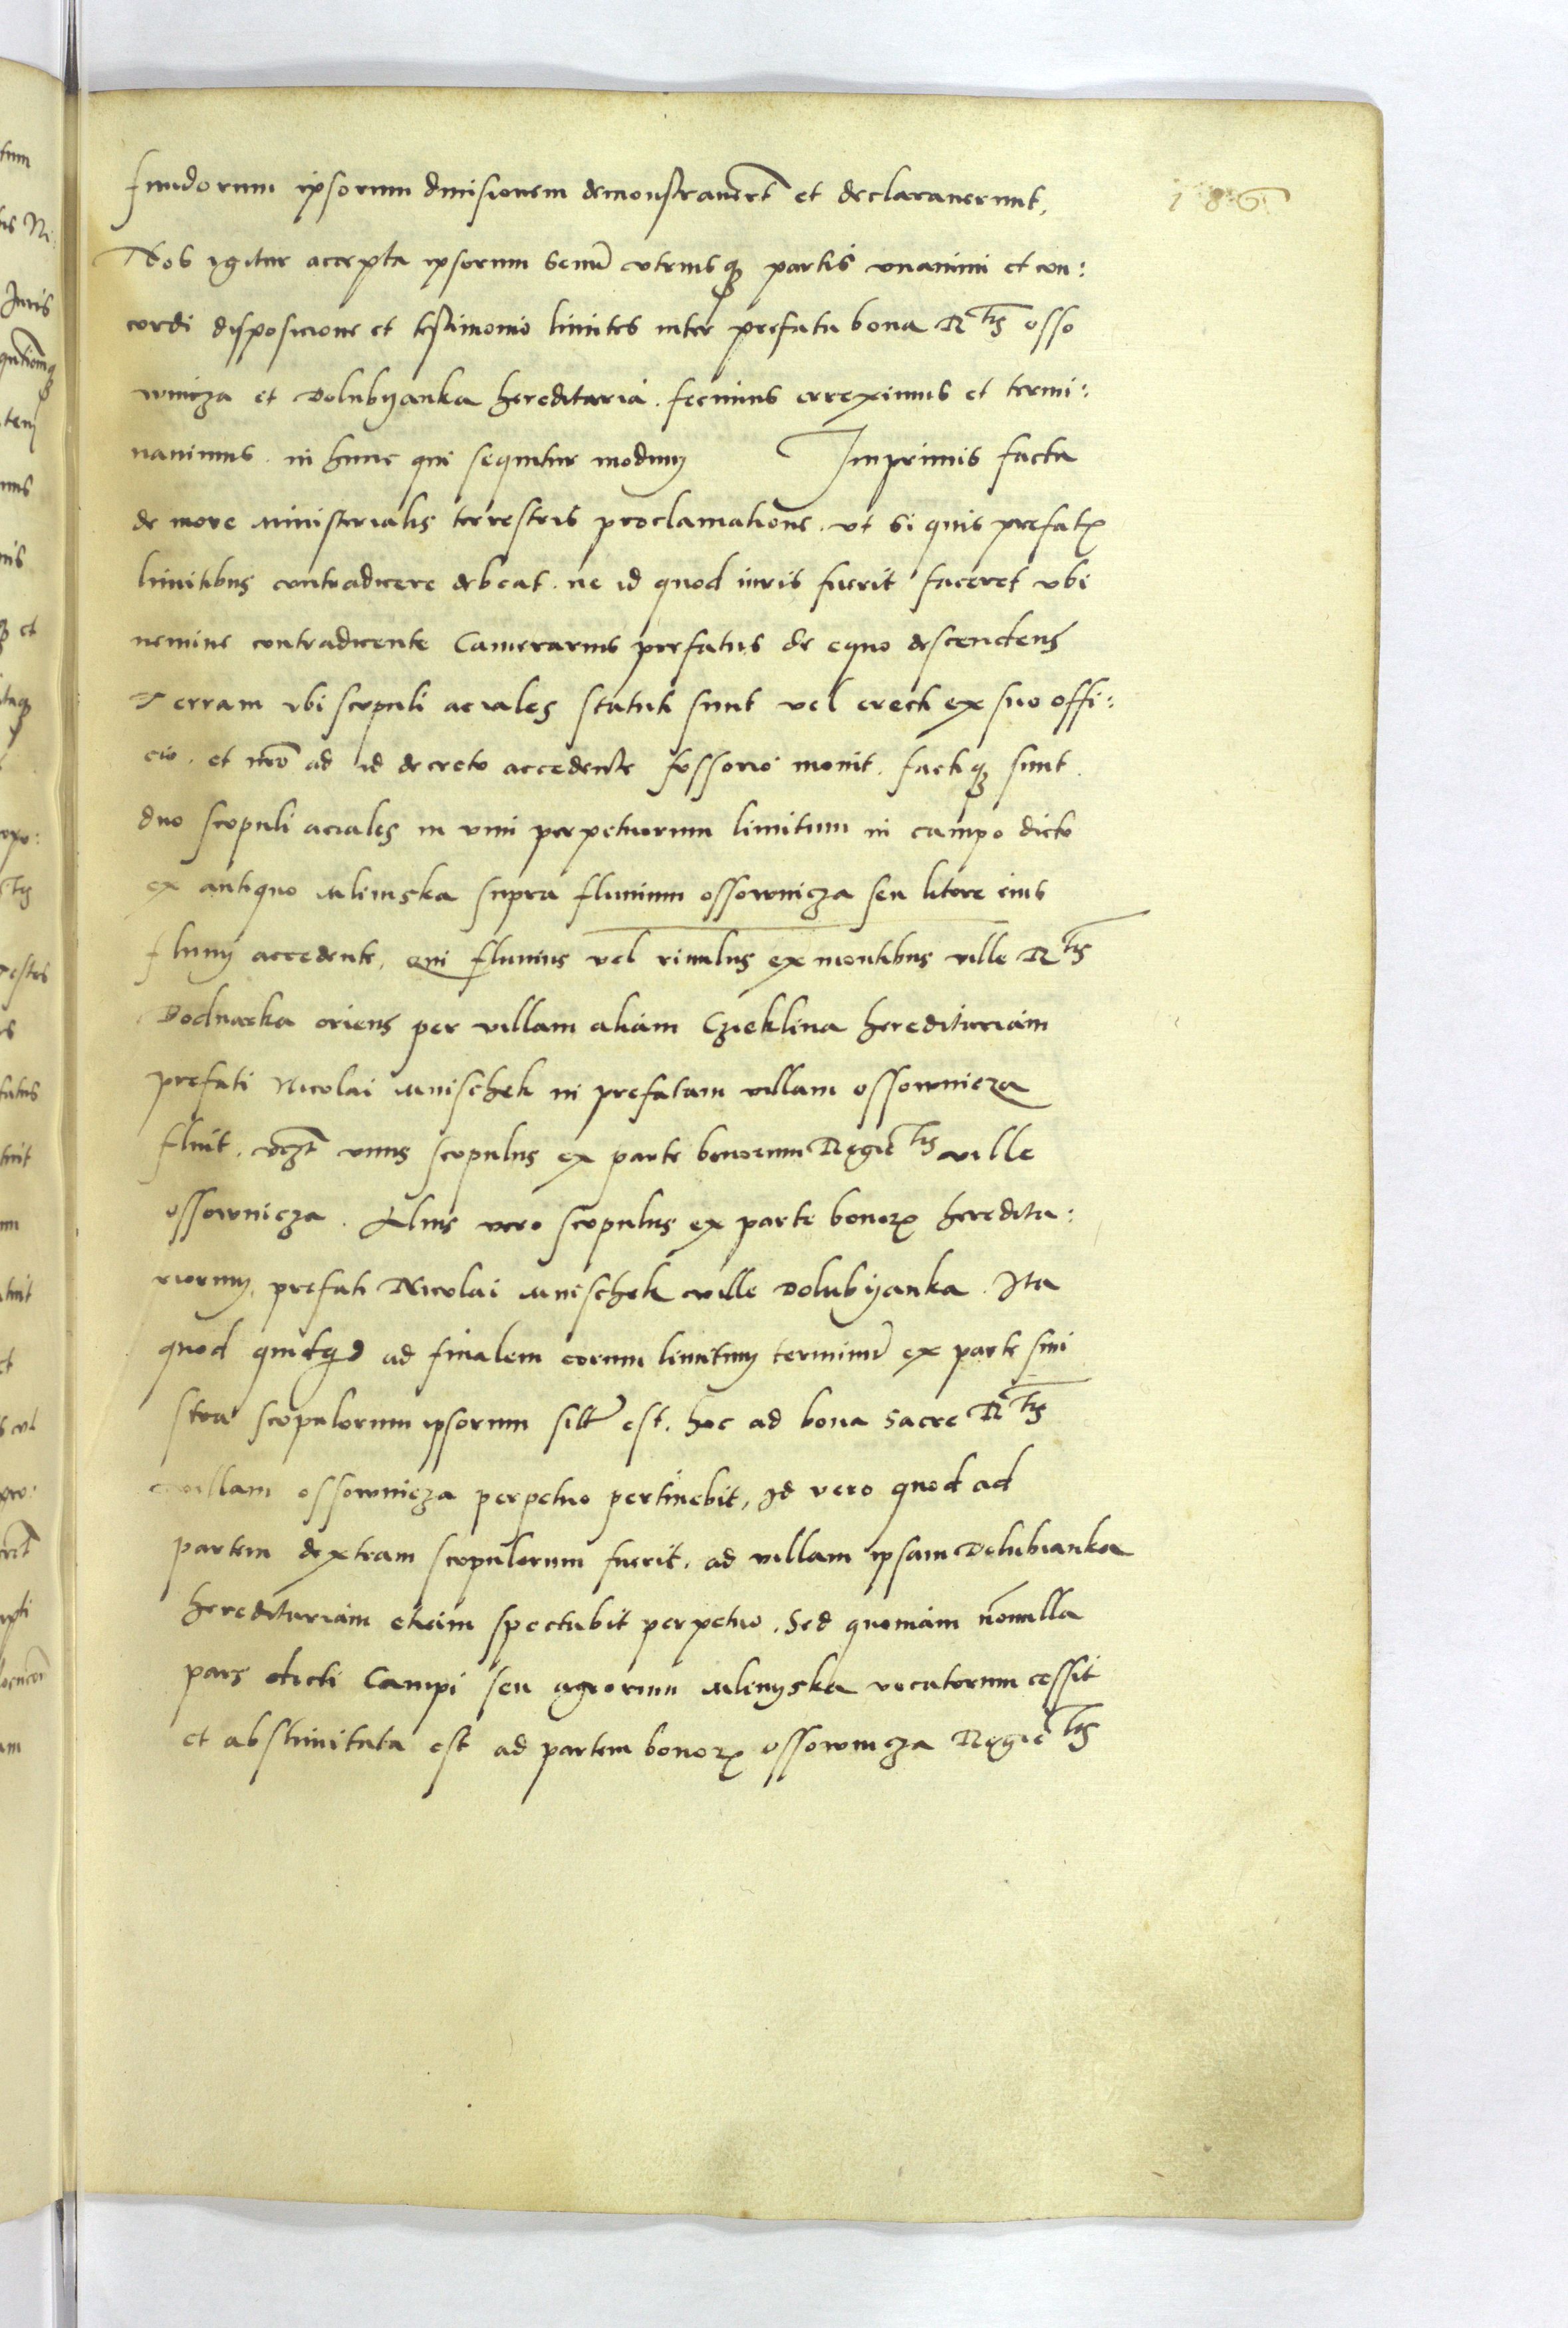 186
fundorum ipsorum diuisionem demonstrauert et declarauerunt,
Nos igitur accepta ipsorum senu vtriusq partis vnanimi et con:
cordi disposicione et testimonio limites inter prefata bona Rtis osso
wnicza et Dolubyanka hereditaria. fecimus erreximus et termi:
nauimus. in hunc qui sequitur modum Imprimis facta
de more ministerialis terrestris proclamatione. vt si quis prefat
limitibus contradicere debeat. ne id quod iuris fuerit faceret vbi
nemine contradicente Camerarius prefatus de equo descendens
Terram vbi scopuli aciales statuti sunt vel erecti ex suo offi:
cio. et nro ad id decreto accedente fossorio monit. factiq sunt.
duo scopuli aciales in vim perpetuorum limitum in campo dicto
ex antiquo Mlinyska supra fluuium ossownicza seu litore eius
fluuij accedente, qui fluuius vel riuulus ex montibus ville Rtis
Bednarka oriens per villam aliam Czieklina hereditariam
prefati Nicolai Mnischek in prefatam villam ossownicza
fluit. vczt vnus scopulus ex parte bonorum Regie tis ville
ossownicza. Alius vero scopulus ex parte bonor heredita:
riorum, prefati Nicolai Mnischek ville Dolubyanka. Ita
quod quidqd ad finalem eorum limitum terminu ex parte sini
stra scopulorum ipsorum silr est. hoc ad bona Sacre Rtis
villam ossownicza perpetuo pertinebit, Id vero quod ad
partem dextram scopulorum fuerit. ad villam ipsam Dolubianka
hereditariam etiam spectabit perpetuo. Sed quoniam nonulla
pars dicti Campi seu agrorum Mlinyska vocatorum cessit
et abslimitata est ad partem bonor ossownicza Regie tis